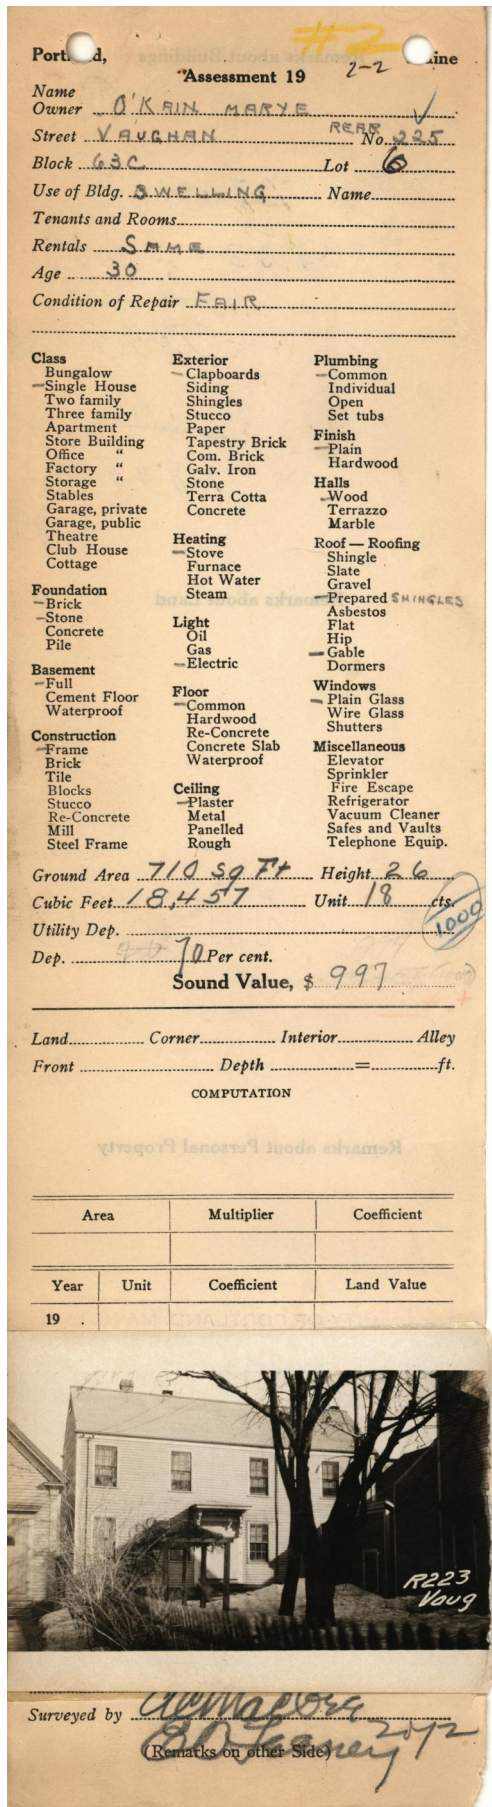 #2
2-2
Portland, Maine
Assessment 19
Name
Owner O'KAIN MARYE
Street VAUGHAN REAR No. 225
Block 63C Lot 6
Use of Bldg. DWELLING Name
Tenants and Rooms
Rentals SAME
Age 30
Condition of Repair FAIR
Class
Bungalow
Single House
Two family
Three family
Apartment
Store Building
Office "
Factory "
Storage "
Stables
Garage, private
Garage, public
Theatre
Club House
Cottage
Foundation
Brick
Stone
Concrete
Pile
Basement
Full
Cement Floor
Waterproof
Construction
Frame
Brick
Tile
Blocks
Stucco
Re-Concrete
Mill
Steel Frame
Exterior
Clapboards
Siding
Shingles
Stucco
Paper
Tapestry Brick
Com. Brick
Galv. Iron
Stone
Terra Cotta
Concrete
Heating
Stove
Furnace
Hot Water
Steam
Light
Oil
Gas
Electric
Floor
Common
Hardwood
Re-Concrete
Concrete Slab
Waterproof
Ceiling
Plaster
Metal
Panelled
Rough
Plumbing
Common
Individual
Open
Set tubs
Finish
Plain
Hardwood
Halls
Wood
Terrazzo
Marble
Roof — Roofing
Shingle
Slate
Gravel
Prepared SHINGLES
Asbestos
Flat
Hip
Gable
Dormers
Windows
Plain Glass
Wire Glass
Shutters
Miscellaneous
Elevator
Sprinkler
Fire Escape
Refrigerator
Vacuum Cleaner
Safes and Vaults
Telephone Equip.
Ground Area 710 sq Ft Height 26
Cubic Feet 18,457 Unit 18 cts.
1000
Utility Dep.
Dep. 70 Per cent.
Sound Value, $ 997
Land Corner Interior Alley
Front Depth = ft.
COMPUTATION
Area Multiplier Coefficient
Year Unit Coefficient Land Value
19
R223
Vaug
Surveyed by
(Remarks on other Side)